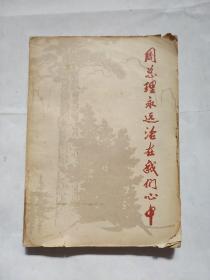 周总理永远活在我们心中